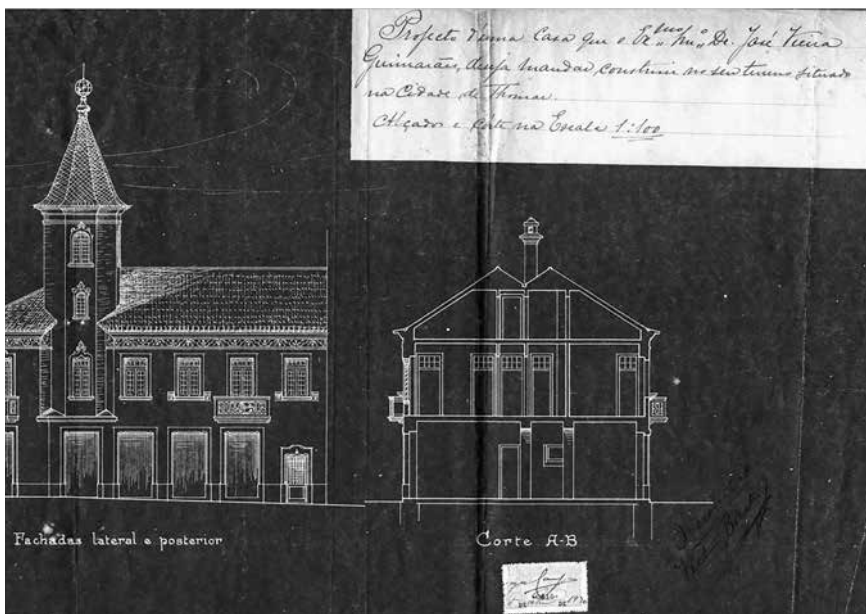 Projecto d'uma Casa que o Ex.mo Snr. Dr. José Vieira
Guimarães, deseja mandar construir no seu terreno situado
na Cidade de Thomar.
Alçados e Corte na Escala 1:100
Fachadas lateral e posterior
Corte A-B